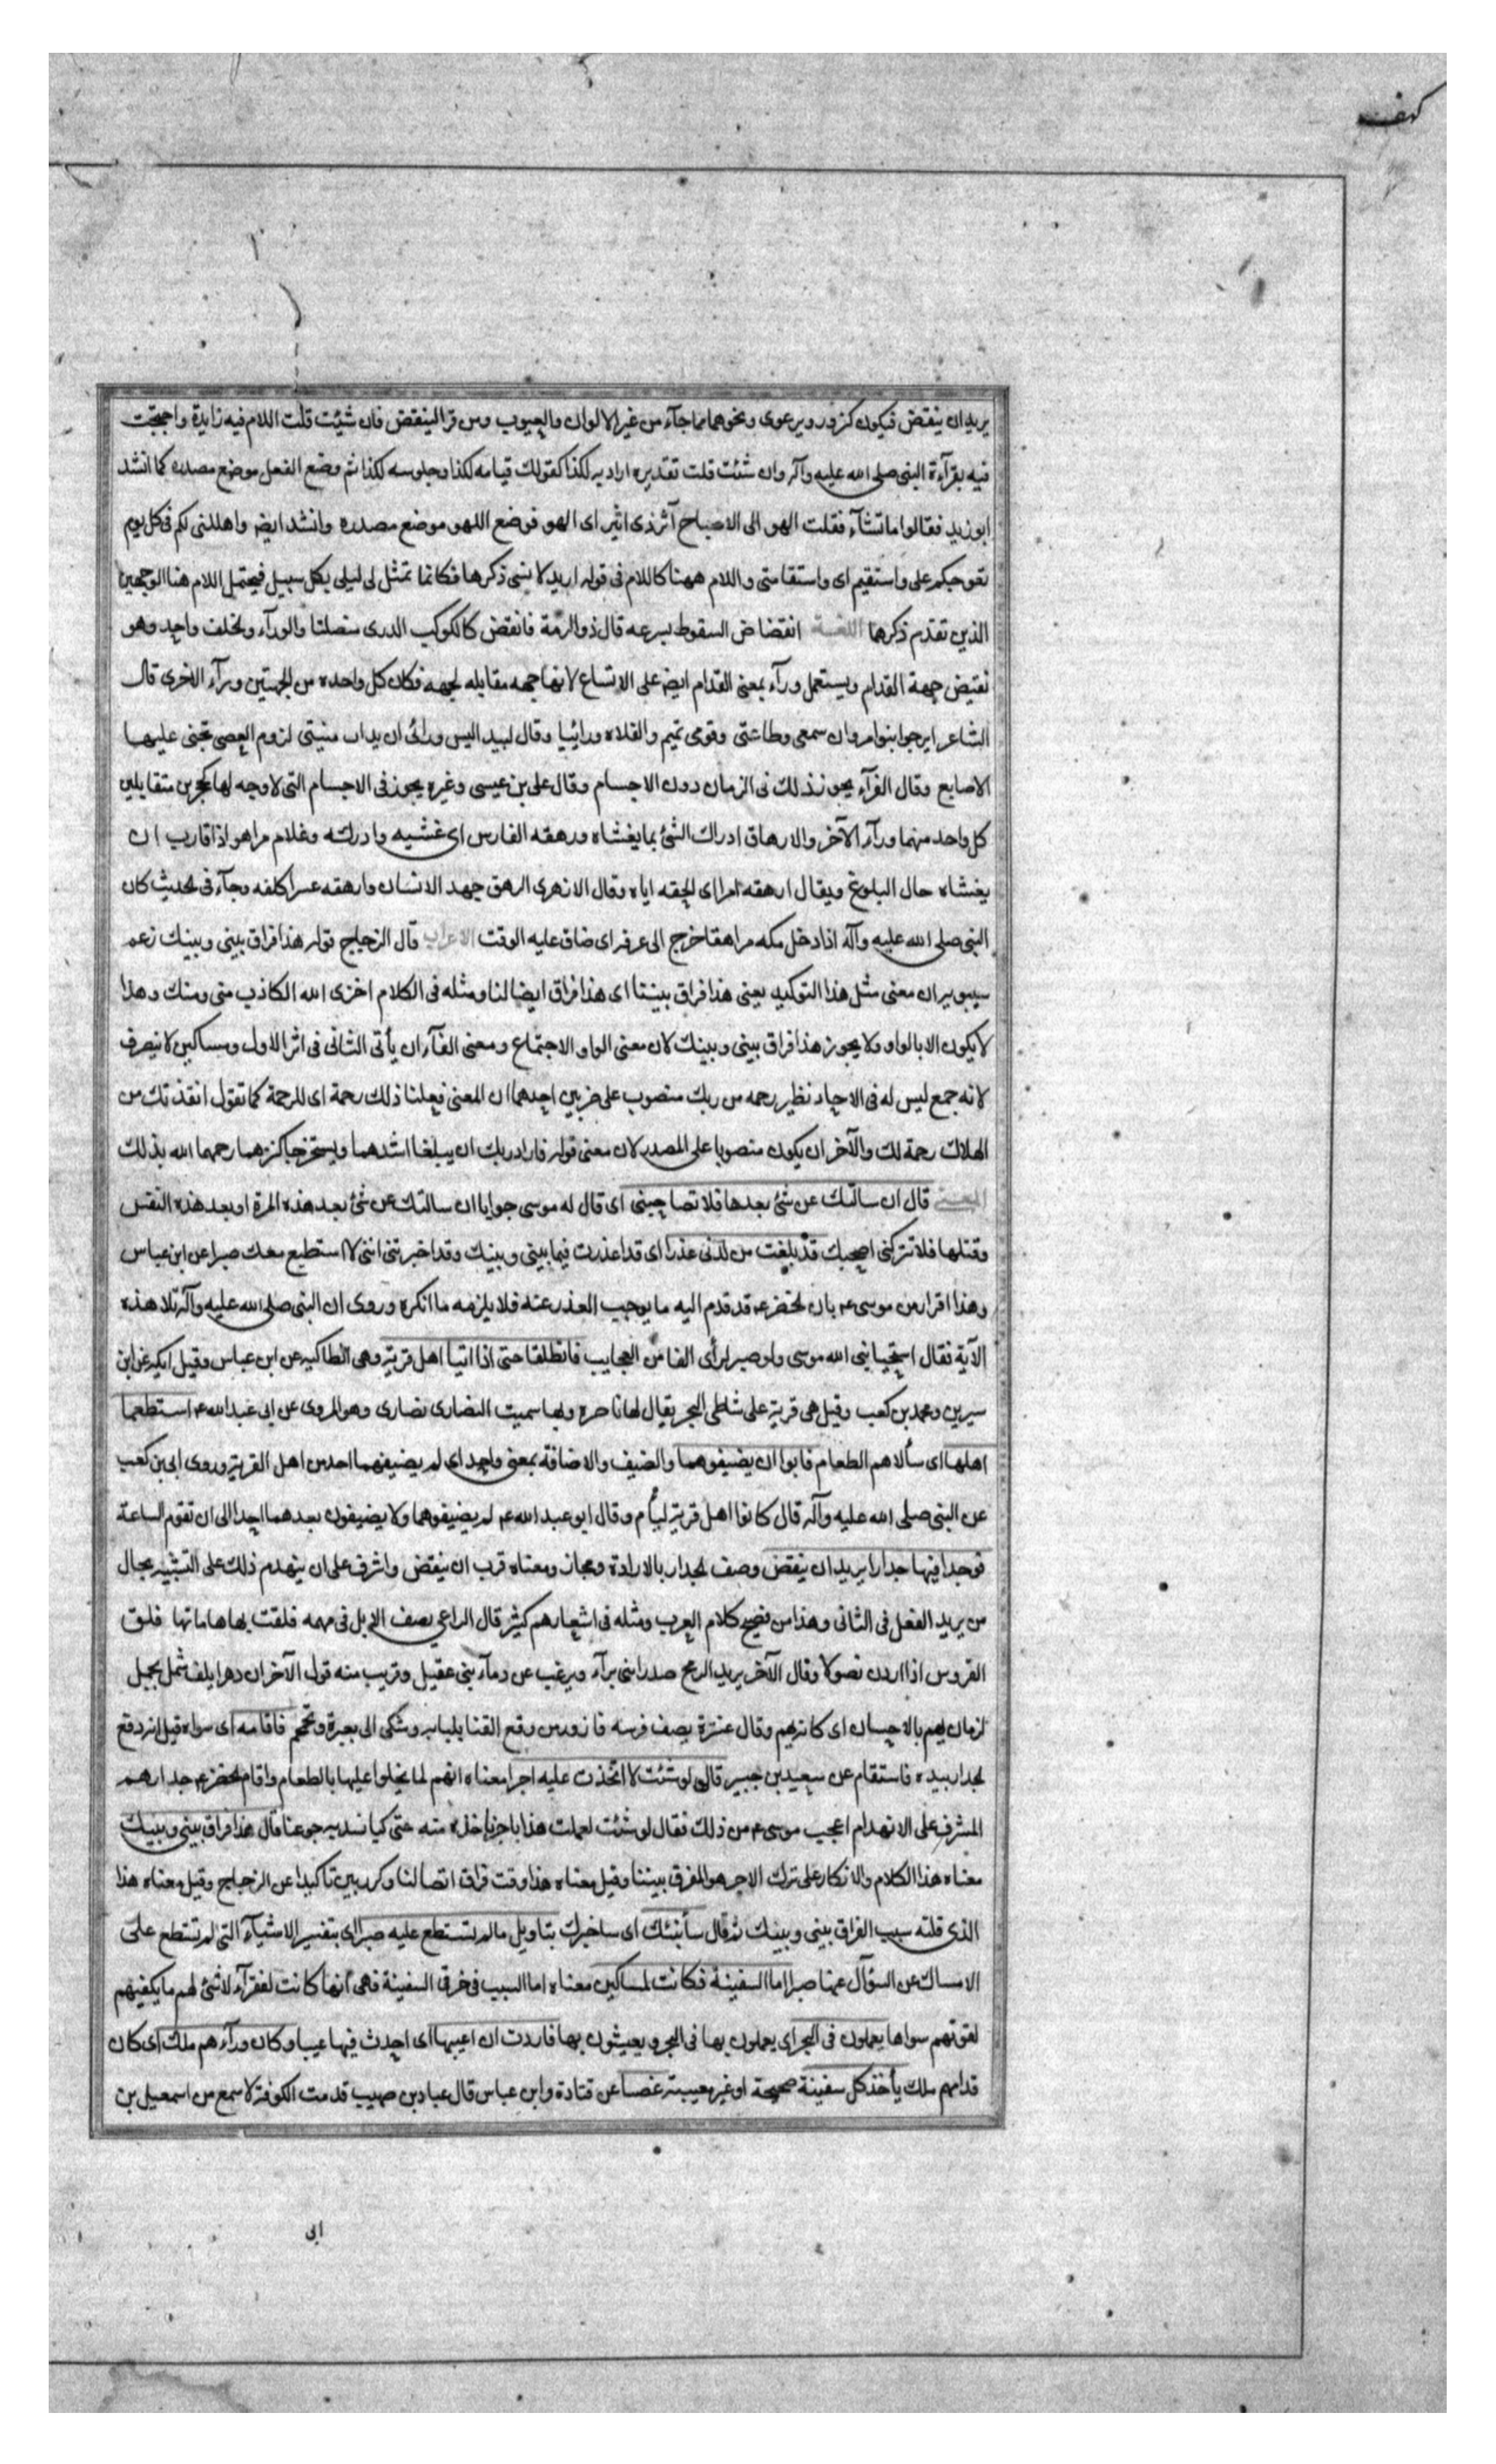 كهف
يريد ان ينقض فيكون كزور ويرعوى ونحوهما مما جآء من غير الالوان والعيوب ومن قرا لينقض فان شئت قلت اللام فيه زايدة واحتججت
فيه بقرآءة النبى صلى الله عليه وآله وان شئت قلت تقديره ارادته لكذا كقولك قيامه لكذا وجلوسه لكذا ثم وضع الفعل موضع مصدره كما انشد
ابو زيد فقالوا ما تشآء فقلت الهو الى الاصباح آثر ذى اثير اى الهو فوضع اللهو موضع مصدره وانشد ايضا واهلكنى لكم فى كل يوم
تعوجكم على واستقيم اى واستقامتى واللام ههنا كاللام فى قوله اريد لا ينسى ذكرها فكانما تمثل لى ليلى بكل سبيل فيحتمل اللام هنا الوجهين
الذين تقدم ذكرها اللغة انقضاض السقوط بسرعه قال ذو الرمة فانقض كالكوكب الدرى منصلتا والورآء والخلف واحد وهو
نقيض جهة القدام ويستعمل ورآء بمعنى القدام ايضا على الاتساع لانها جهه مقابله لجهه فكان كل واحده من الجهتين ورآء الاخرى قال
الشاعر ايرجوا بنوا مروان سمعى وطاعتى وقومى تميم والفلاه ورائيا وقال لبيد اليس ورائى ان يدات منيتى لزوم العصى تحنى عليها
الاصابع وقال الفرآء يجوز ذلك فى الزمان دون الاجسام وقال على بن عيسى وغيره يجوز فى الاجسام التى لا وجه لها كحجرين متقابلين
كل واحد منهما ورآء الآخر والارهاق ادراك الشئ بما يغشاه ورهقه الفارس اى غشيه وادركه وغلام مراهق اذا قارب ان
يغشاه حال البلوغ ويقال ارهقه امرا اى الحقه اياه وقال الازهرى الرهق جهد الانسان وارهقه عسرا كلفه وجآء فى الحديث كان
النبى صلى الله عليه وآله اذا دخل مكه مراهقا خرج الى عرفه اى ضاق عليه الوقت الاعراب قال الزجاج قوله هذا فراق بينى وبينك زعم
سيبويه ان معنى مثل هذا التوكيد يعنى هذا فراق بيننا اى هذا فراق ايصالنا ومثله فى الكلام اخزى الله الكاذب منى ومنك وهذا
لا يكون الا بالواو ولا يجوز هذا فراق بينى وبينك لان معنى الواو الاجتماع ومعنى الفآء ان يأتى الثانى فى اثر الاول ومساكين لا ينصرف
لانه جمع ليس له فى الاحاد نظير رحمه من ربك منصوب على ضربين احدهما ان المعنى فعلنا ذلك رحمة اى للرحمة كما تقول انقذتك من
الهلاك رحمة لك والآخر ان يكون منصوبا على المصدر لان معنى قوله فاراد ربك ان يبلغا اشدهما ويستخرجا كنزهما رحمهما الله بذلك
المعنى قال ان سالتك عن شئ بعدها فلا تصاحبنى اى قال له موسى جوابا ان سالتك عن شئ بعد هذه المرة او بعد هذه النفس
وقتلها فلا تتركنى اصحبك قد بلغت من لدنى عذرا اى قد اعذرت فيما بينى وبينك وقد اخبرتنى اننى لا استطيع معك صبرا عن ابن عباس
وهذا اقرار من موسى ع بان الخضر ع قد قدم اليه ما يوجب العذر عنه فلا يلزمه ما انكره وروى ان النبى صلى الله عليه وآله تلا هذه
الآية فقال استحيا نبى الله موسى ولو صبر لرأى الفا من العجايب فانطلقا حتى اذا اتيا اهل قرية وهى انطاكيه عن ابن عباس وقيل ايكه عن ابن
سيرين ومحمد بن كعب وقيل هى قرية على شاطى البحر يقال لها ناصره وبها سميت النصارى نصارى وهو المروى عن ابى عبدالله ع استطعما
اهلها اى سألاهم الطعام فابوا ان يضيفوهما والضيف والاضافة بمعنى واحد اى لم يضيفهما احد من اهل القرية وروى ابى بن كعب
عن النبى صلى الله عليه وآله قال كانوا اهل قرية ليأم وقال ابو عبد الله ع لم يضيفوهما ولا يضيفون بعدهما احدا الى ان تقوم الساعة
فوجدا فيها جدارا يريد ان ينقض وصف الجدار بالارادة ومجاز ومعناه قرب ان ينقض واشرف على ان ينهدم ذلك على التشبيه بحال
من يريد الفعل فى الثانى وهذا من فصيح كلام العرب ومثله فى اشعارهم كثير قال الراعى يصف الابل فى مهمه فلقت بها هاماتها فلق
الفروس اذا اردن نصولا وقال الآخر يريد الرمح صدر ابنى برآء ويرغب عن دمآء بنى عقيل وقريب منه قول الآخر ان دهرا يلف شمل بجمل
لزمان يهم بالاحسان اى كانه يهم وقال عنترة يصف فرسه فازور من وقع القنا بلبانه وشكى الى بعبرة وتحمحم فاقامه اى سواه قيل انه دفع
الجدار بيده فاستقام عن سعيد بن جبير قال لو شئت لا اتخذت عليه اجرا معناه انهم لما بخلوا عليها بالطعام واقام الخضر ع جدارهم
المشرف على الانهدام اعجب موسى ع من ذلك فقال لو شئت لعملت هذا باجر تاخذه منه حتى كيا نسد به جوعنا قال هذا فراق بينى وبينك
معناه هذا الكلام والانكار على ترك الاجر هو المفرق بيننا وقيل معناه هذا وقت فراق اتصالنا وكرر بين تاكيدا عن الزجاج وقيل معناه هذا
الذى قلته سبب الفراق بينى وبينك ثم قال سأنبئك اى ساخبرك بتاويل ما لم تستطع عليه صبرا اى بتفسير الاشيآء التى لم تستطع على
الامساك عن السؤال عنها صبرا اما السفينة فكانت لمساكين معناه اما السبب فى خرق السفينة فهى أنها كانت لفقرآء لا شئ لهم ما يكفيهم
لقوتهم سواها يعملون فى البحر اى يعملون بها فى البحر ويعيشون بها فاردت ان اعيبها اى احدث فيها عيبا وكان ورآءهم ملك اى كان
قدامهم ملك يأخذ كل سفينة صحيحة او غير معيبة غصبا عن قتادة وابن عباس قال عباد بن صهيب قدمت الكوفة لاسمع من اسمعيل بن
ابى